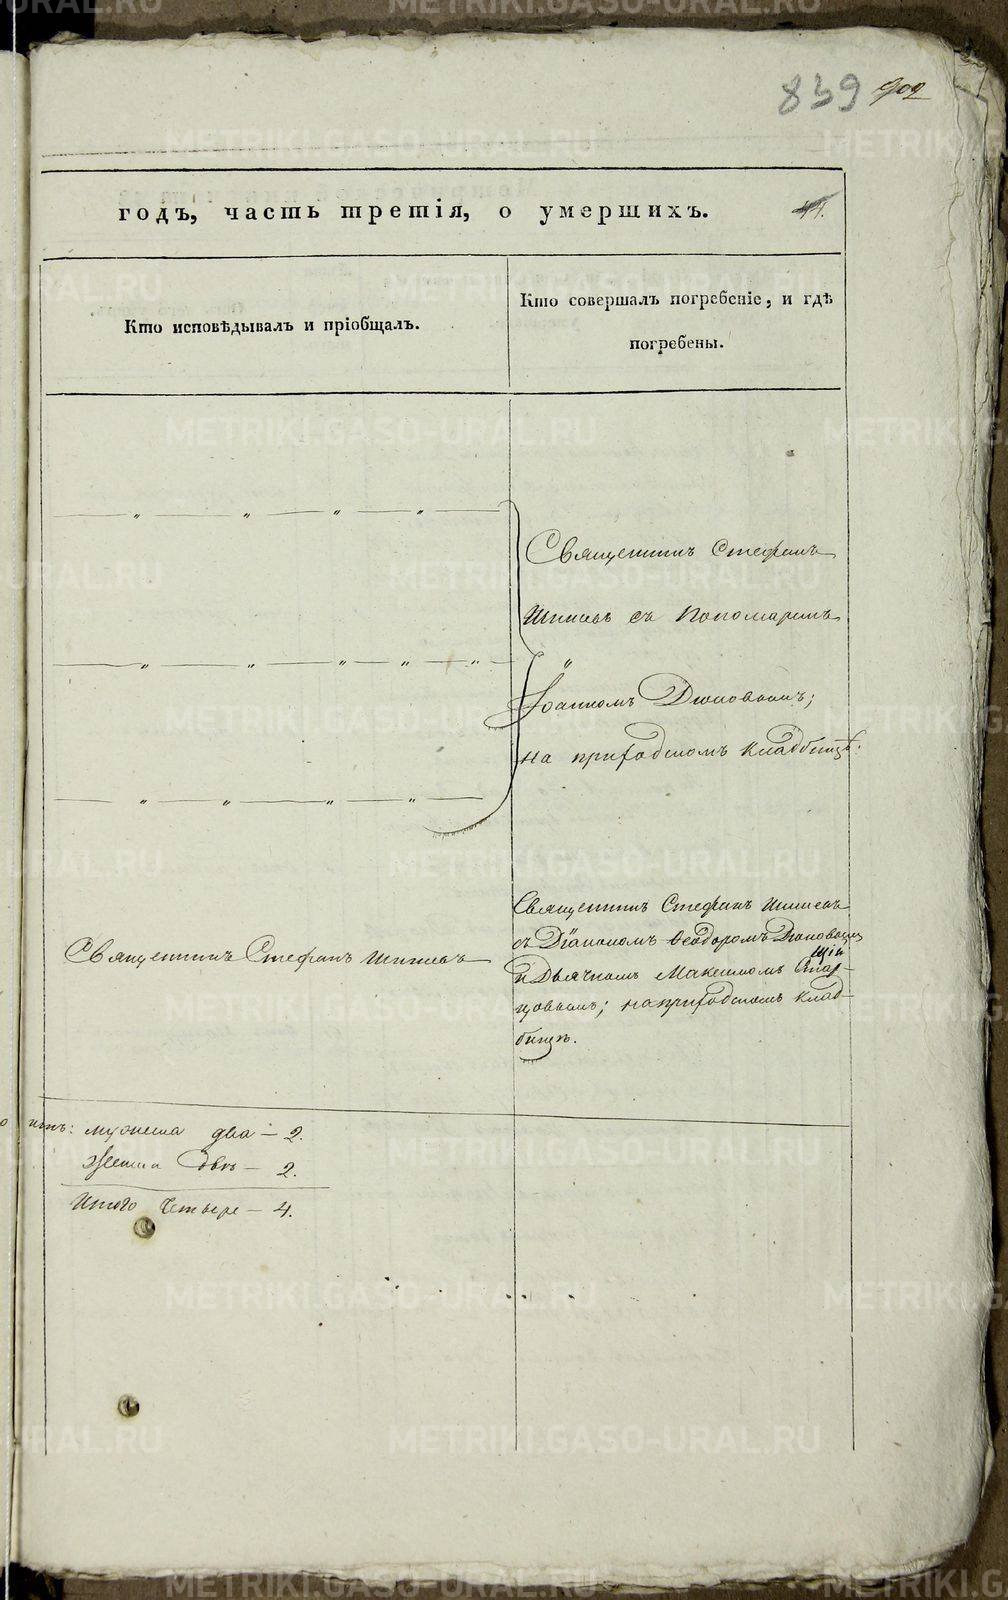 839 902
годъ, часть третія, о умершихъ. 44.
Кто исповѣдывалъ и пріобщалъ.
Кто совершалъ погребеніе, и гдѣ
погребены.
Священникъ Стефанъ
съ Пономаремъ
Іоанномъ
на приходскомъ кладбищѣ.
Священникъ Стефанъ
Священникъ Стефанъ
съ Діакономъ Ѳеодоромъ
и Дьячкомъ Максимомъ
на приходскомъ клад-
бищѣ.
мужеска два — 2.
Женска двѣ — 2.
Итого Четыре — 4.
METRIKI.GASO-URAL.RU